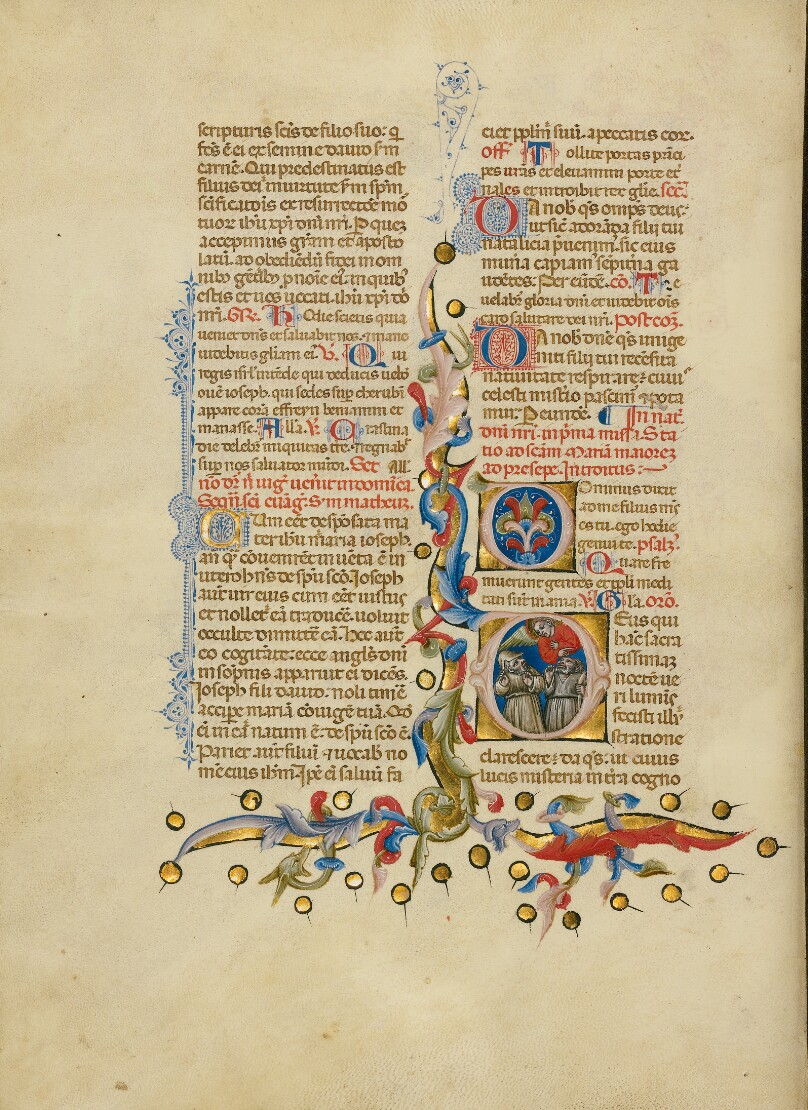 scripturis scis de filio suo: q̄
fcs ē ei ex semine dauid s̄m
carnē. Qui predestinatus est
filius dei in uirtute s̄m sp̄m
scificatōis ex resurrectōe mō
tuor ihū xp̄i dn̄i nr̄i. P quez
accepimus grām et aposto
latū. ad obediēdū fidei in om
nib; gētib; p noīe ei. in quib;
estis et uos uocati. ihū xp̄i dō
nr̄i. GR. Hodie scietis quia
ueniet dn̄s et saluabit nos. ⁊ mane
uidebitis glīam ei. V. Qui
regis isrl intēde qui deducis uelud
ouē ioseph. qui sedes sup cherubī
appare corā effrem beniamin et
manasse. Alla. V. Crastina
die delebit̄ iniquitas tr̄e. ⁊ regnab̄
sup nos saluator mūdi. Sct All.
nō dr̄ n̄ uig̃ uen̄it in domīca.
Sequ. sci euāg. S'm matheuz.
Cum eēt desposata ma
ter ihū maria ioseph.
an̄ q̄ cōuenirēt inuēta ē in
utero hn̄s de sp̄u scō. Ioseph
aut̄ uir eius cum eēt iustus
et nollet eā traducē. uoluit
occulte dimittē eā. Hec aut̄
eo cogitāte: ecce angls dn̄i
in sōpnis apparuit ei dicēs.
Ioseph fili dauid: noli timē
accipe mariā cōiugē tuā. Qd̄
ei in eā natum ē: de sp̄u scō ē.
Pariet aut̄ filiū ⁊ uocab̄ no
mē eius ihm̄. Ipē ei saluū fa
ciet pplm̄ suū. a peccatis eor.
off. Tollite portas prīci
pes uras et eleuamini porte et̄
nales et introibit rex glīe. secr̄.
Da nob q̄s omps deus:
ut sic adorāda filii tui
natalicia puenim. sic eius
munia capiam sēpit̄na ga
udētes. Per eūdē. cō. Re
uelab gloria dn̄i et uidebit ois
caro salutare dei nr̄i. Post cōz.
Da nob dn̄e q̄s unige
niti filij tui recēsita
natiuitate respirare: cuius
celesti mistio pascim ⁊ pota
mur. P eundē. In nat̄.
dn̄i nr̄i. in p̄ma missa. Sta
tio ad scām Mariā maiorez
ad presepe. Introitus:
Dominus dixit
ad me filius ms̄
es tu. ego hodie
genui te. psalz.
Quare fre
muerunt gentes et ppli medi
tati sūt inania. V. Gla. orō.
Deus qui
hāc sacra
tissimaz
noctē ue
ri luminis
fecisti illu
stratione
clarescere: da q̄s: ut cuius
lucis misteria in tr̄a cogno